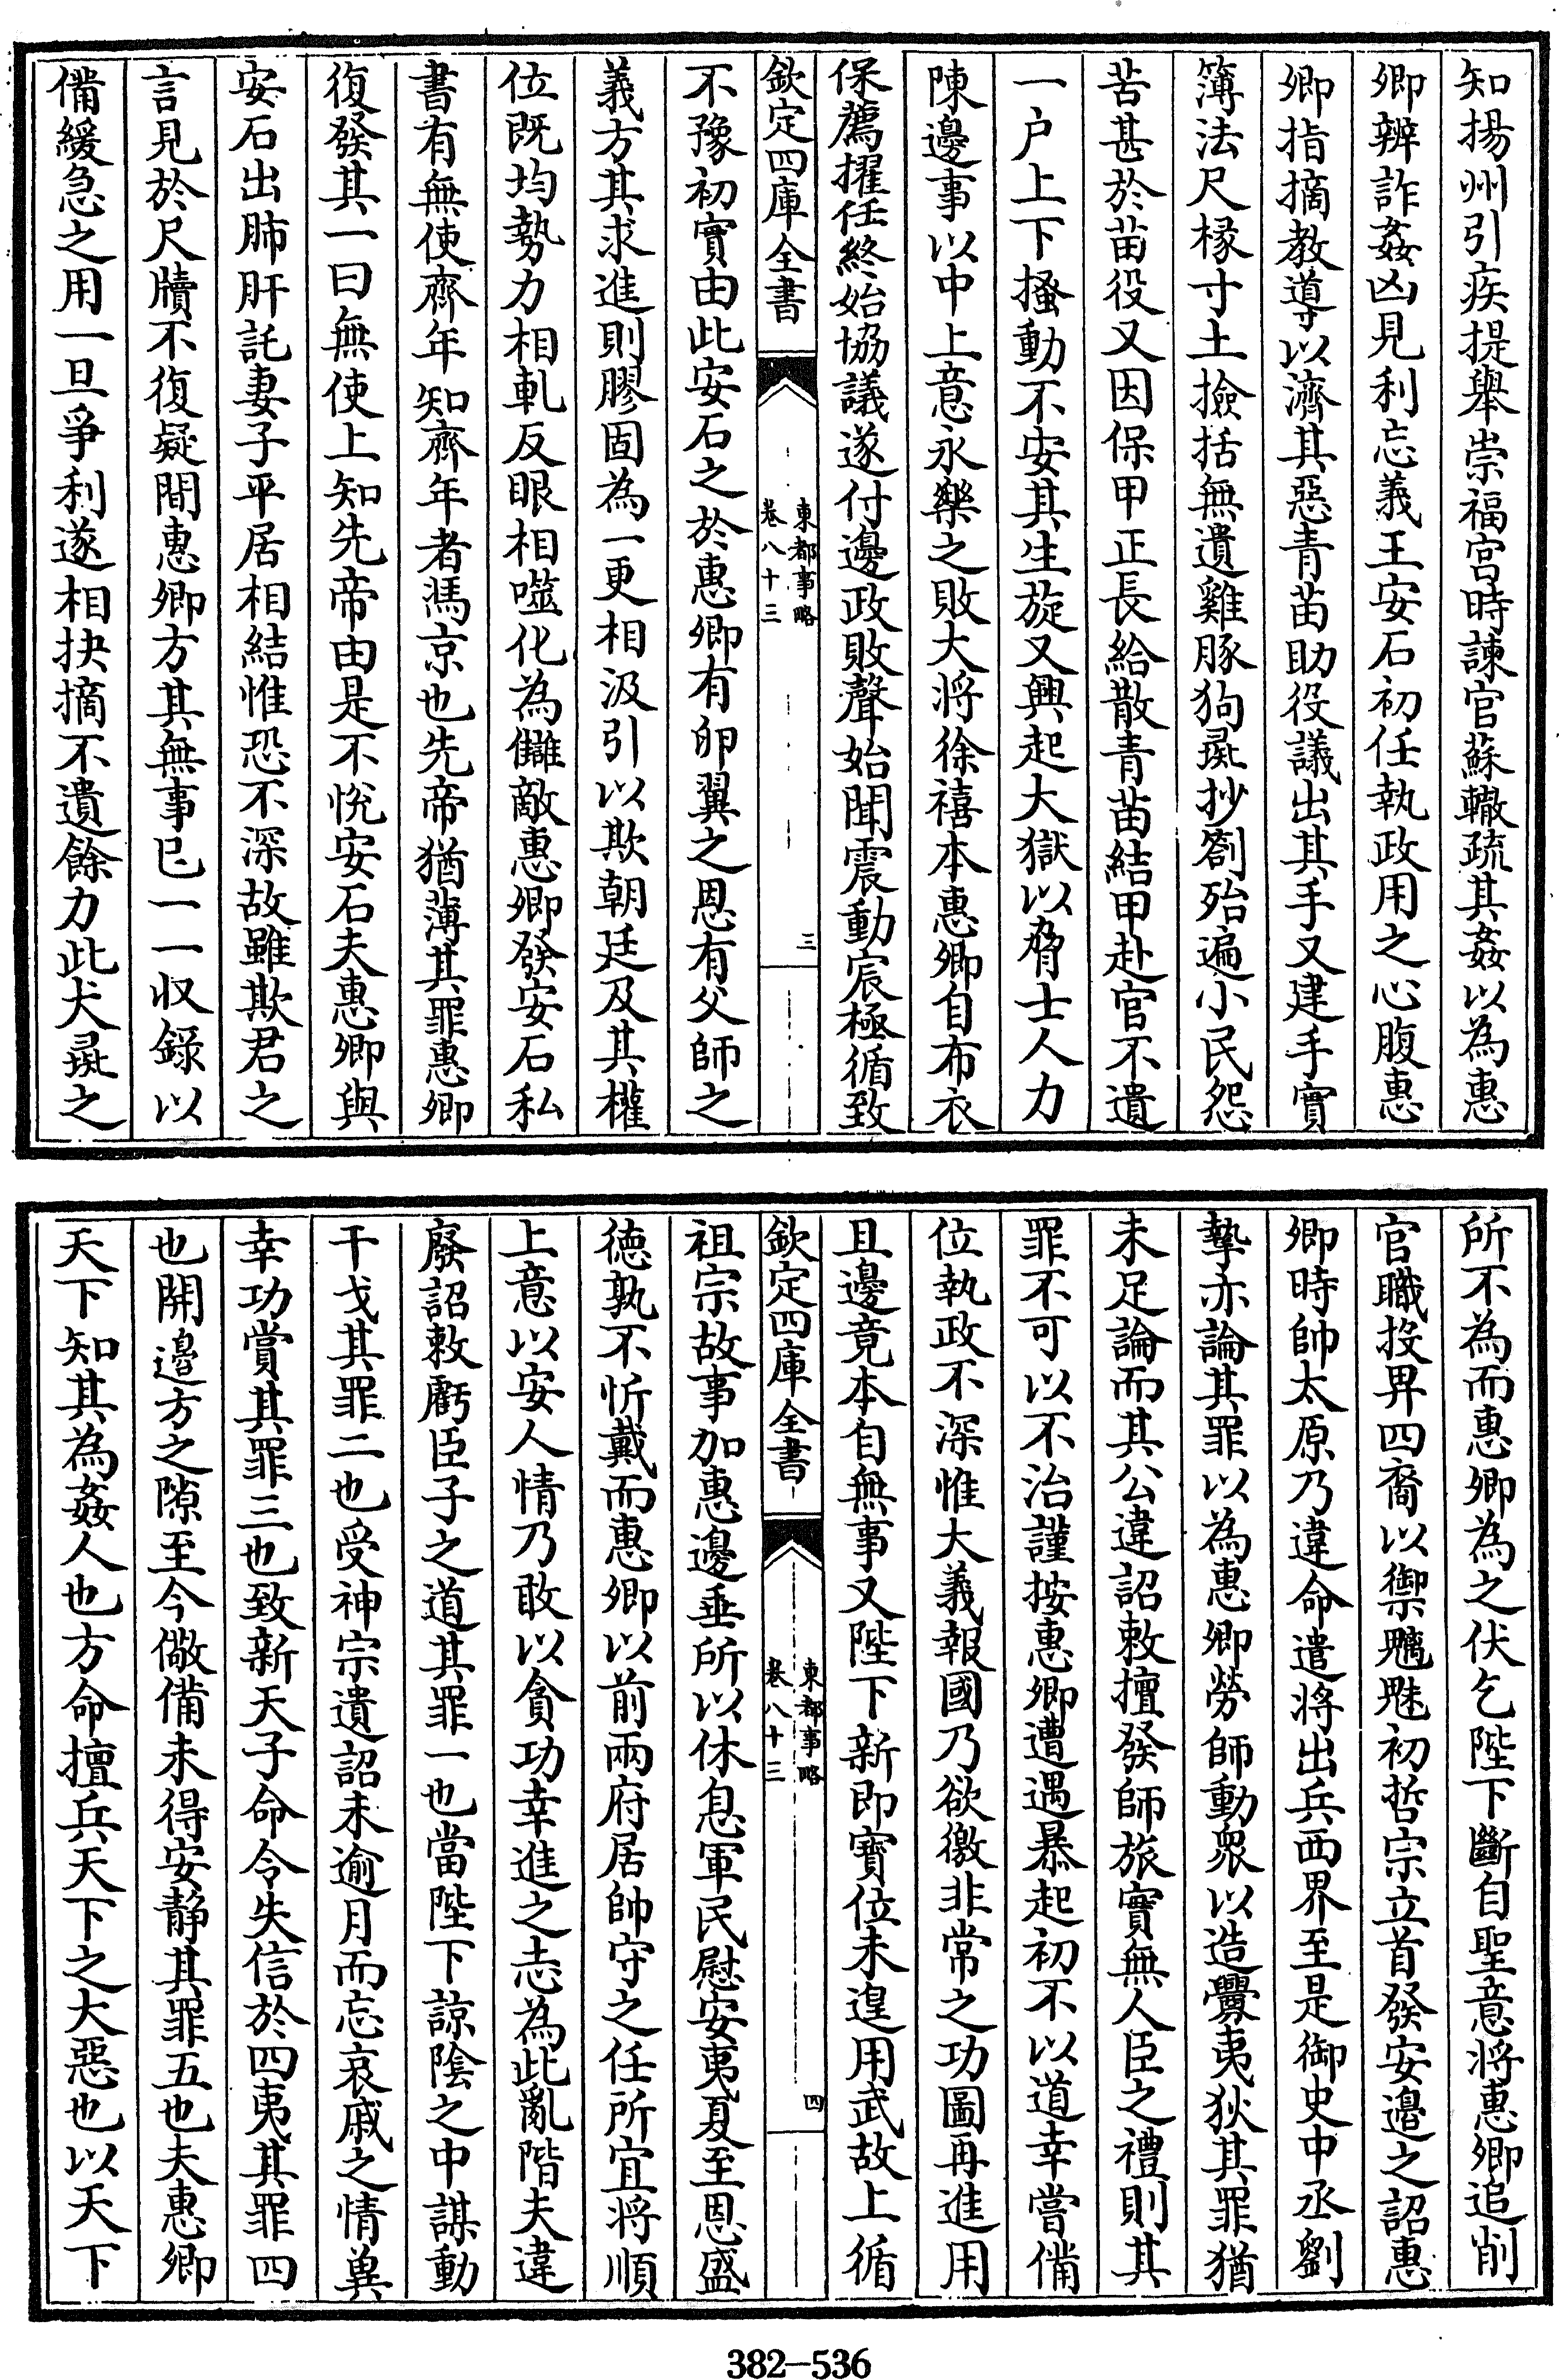 知揚州引疾提舉崇福宮時諫官蘇轍疏其姦以為惠
卿辨詐姦凶見利忘義王安石初任執政用之心腹惠
卿指摘教導以濟其惡青苗助役議出其手又建手實
簿法尺椽寸土撿括無遺雞豚狗彘抄劄殆遍小民怨
苦甚於苗役又因保甲正長給散青苗結甲赴官不遺
一户上下搔動不安其生旋又興起大獄以脅士人力
陳邊事以中上意永樂之敗大將徐禧本惠卿自布衣
保薦擢任終始協議遂付邊政敗聲始聞震動宸極循致
欽定四庫全書
東都事略
卷八十三
三
不豫初實由此安石之於惠卿有卵翼之恩有父師之
義方其求進則膠固為一更相汲引以欺朝廷及其權
位既均勢力相軋反眼相噬化為讎敵惠卿發安石私
書有無使齊年知齊年者馮京也先帝猶薄其罪惠卿
復發其一曰無使上知先帝由是不悅安石夫惠卿與
安石出肺肝託妻子平居相結惟恐不深故雖欺君之
言見於尺牘不復疑間惠卿方其無事已一一収錄以
備緩急之用一旦爭利遂相抉摘不遺餘力此犬彘之
所不為而惠卿為之伏乞陛下斷自聖意將惠卿追削
官職投畀四裔以禦魑魅初哲宗立首發安邊之詔惠
卿時帥太原乃違命遣將出兵西界至是御史中丞劉
摯亦論其罪以為惠卿勞師動衆以造釁夷狄其罪猶
未足論而其公違詔敕擅發師旅實無人臣之禮則其
罪不可以不治謹按惠卿遭遇暴起初不以道幸嘗備
位執政不深惟大義報國乃欲徼非常之功圖再進用
且邊竟本自無事又陛下新即寶位未遑用武故上循
欽定四庫全書
東都事略
卷八十三
四
祖宗故事加惠邊垂所以休息軍民慰安夷夏至恩盛
德孰不忻戴而惠卿以前兩府居帥守之任所宜將順
上意以安人情乃敢以貪功幸進之志為此亂階夫違
廢詔敕虧臣子之道其罪一也當陛下諒陰之中謀動
干戈其罪二也受神宗遺詔未逾月而忘哀戚之情兾
幸功賞其罪三也致新天子命令失信於四夷其罪四
也開邊方之隙至今儆備未得安靜其罪五也夫惠卿
天下知其為姦人也方命擅兵天下之大惡也以天下
382-536